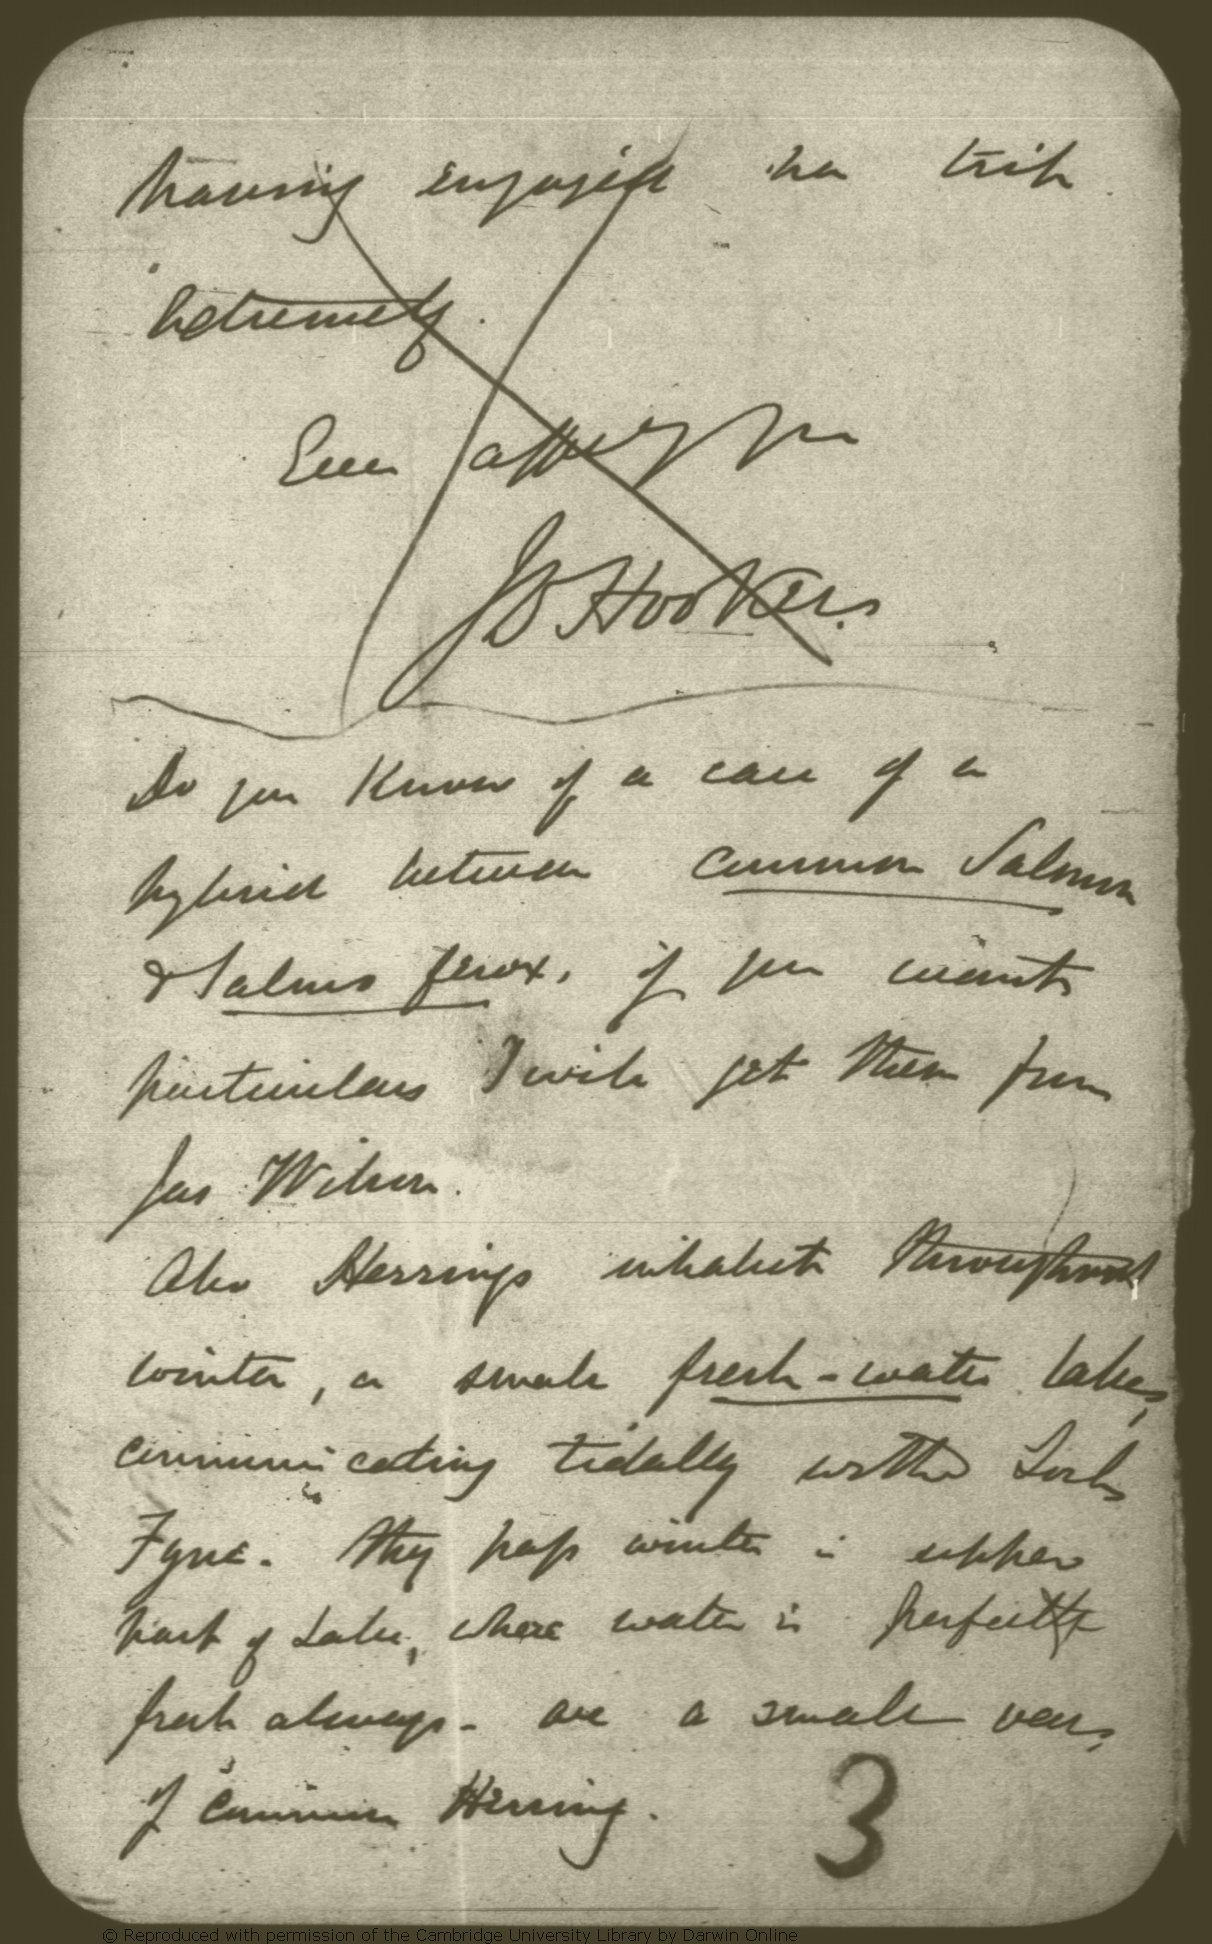 having enjoyed our trip
extremely.
Ever affecy yrs
JD Hooker.
Do you know of a case of a
hybrid between common Salmon
& Salmo ferox, if you want
particulars I will get them from
Jas Wilson.
Also Herrings inhabit throughout
winter, a small fresh-water lake,
communicating tidally with Loch
Fyne. they pass winter in upper
part of Lake, where water is perfectly
fresh always- are a small var,
of common Herring.
3
© Reproduced with permission of the Cambridge University Library by Darwin Online